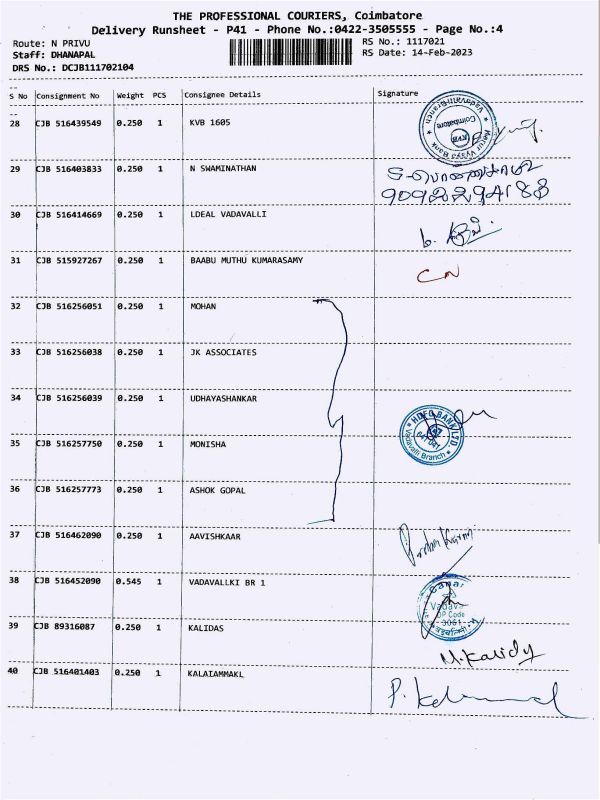 THE PROFESSIONAL COURIERS, Coimbatore
Delivery Runsheet - P41 - Phone No.:0422-3505555 - Page No.:4
Route: N PRIVU RS No.: 1117021
Staff: DHANAPAL RS Date: 14-Feb-2023
DRS No.: DCJB111702104
--
S No Consignment No Weight PCS Consignee Details Signature
--
28 CJB 516439549 0.250 1 KVB 1605
Karur Vysya Bank
Coimbatore
KVB
Vadavalli Branch
29 CJB 516403833 0.250 1 N SWAMINATHAN
30 CJB 516414669 0.250 1 LDEAL VADAVALLI
31 CJB 515927267 0.250 1 BAABU MUTHU KUMARASAMY CN
32 CJB 516256051 0.250 1 MOHAN
33 CJB 516256038 0.250 1 JK ASSOCIATES
34 CJB 516256039 0.250 1 UDHAYASHANKAR
HDFC BANK LTD.
Vadavalli Branch
35 CJB 516257750 0.250 1 MONISHA
36 CJB 516257773 0.250 1 ASHOK GOPAL
37 CJB 516462090 0.250 1 AAVISHKAAR
38 CJB 516452090 0.545 1 VADAVALLKI BR 1
DP Code
39 CJB 89316087 0.250 1 KALIDAS
40 CJB 516401403 0.250 1 KALAIAMMAKL